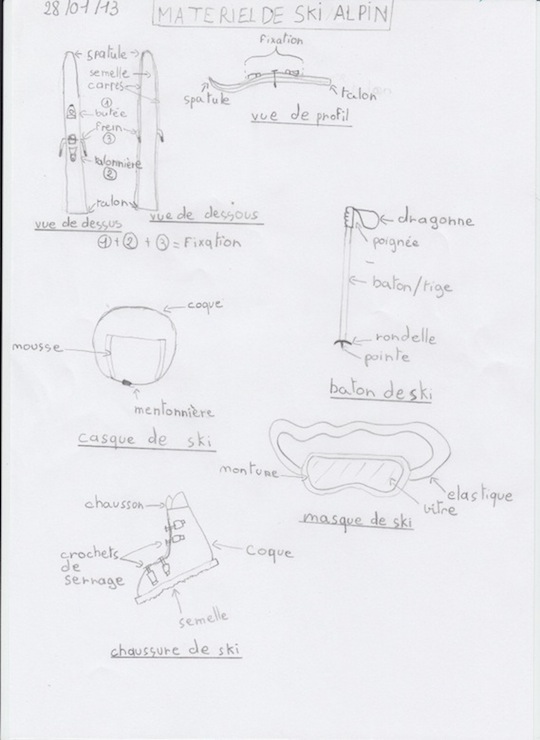 28/01/13
MATERIEL DE SKI ALPIN
spatule
semelle
carres
①
butée
frein
③
talonnière
②
talon
vue de dessus
vue de dessous
①+②+③=Fixation
Fixation
spatule
talon
vue de profil
dragonne
poignée
baton/tige
rondelle
pointe
baton de ski
coque
mousse
mentonnière
casque de ski
monture
elastique
vitre
masque de ski
chausson
crochets
de
serrage
coque
semelle
chaussure de ski